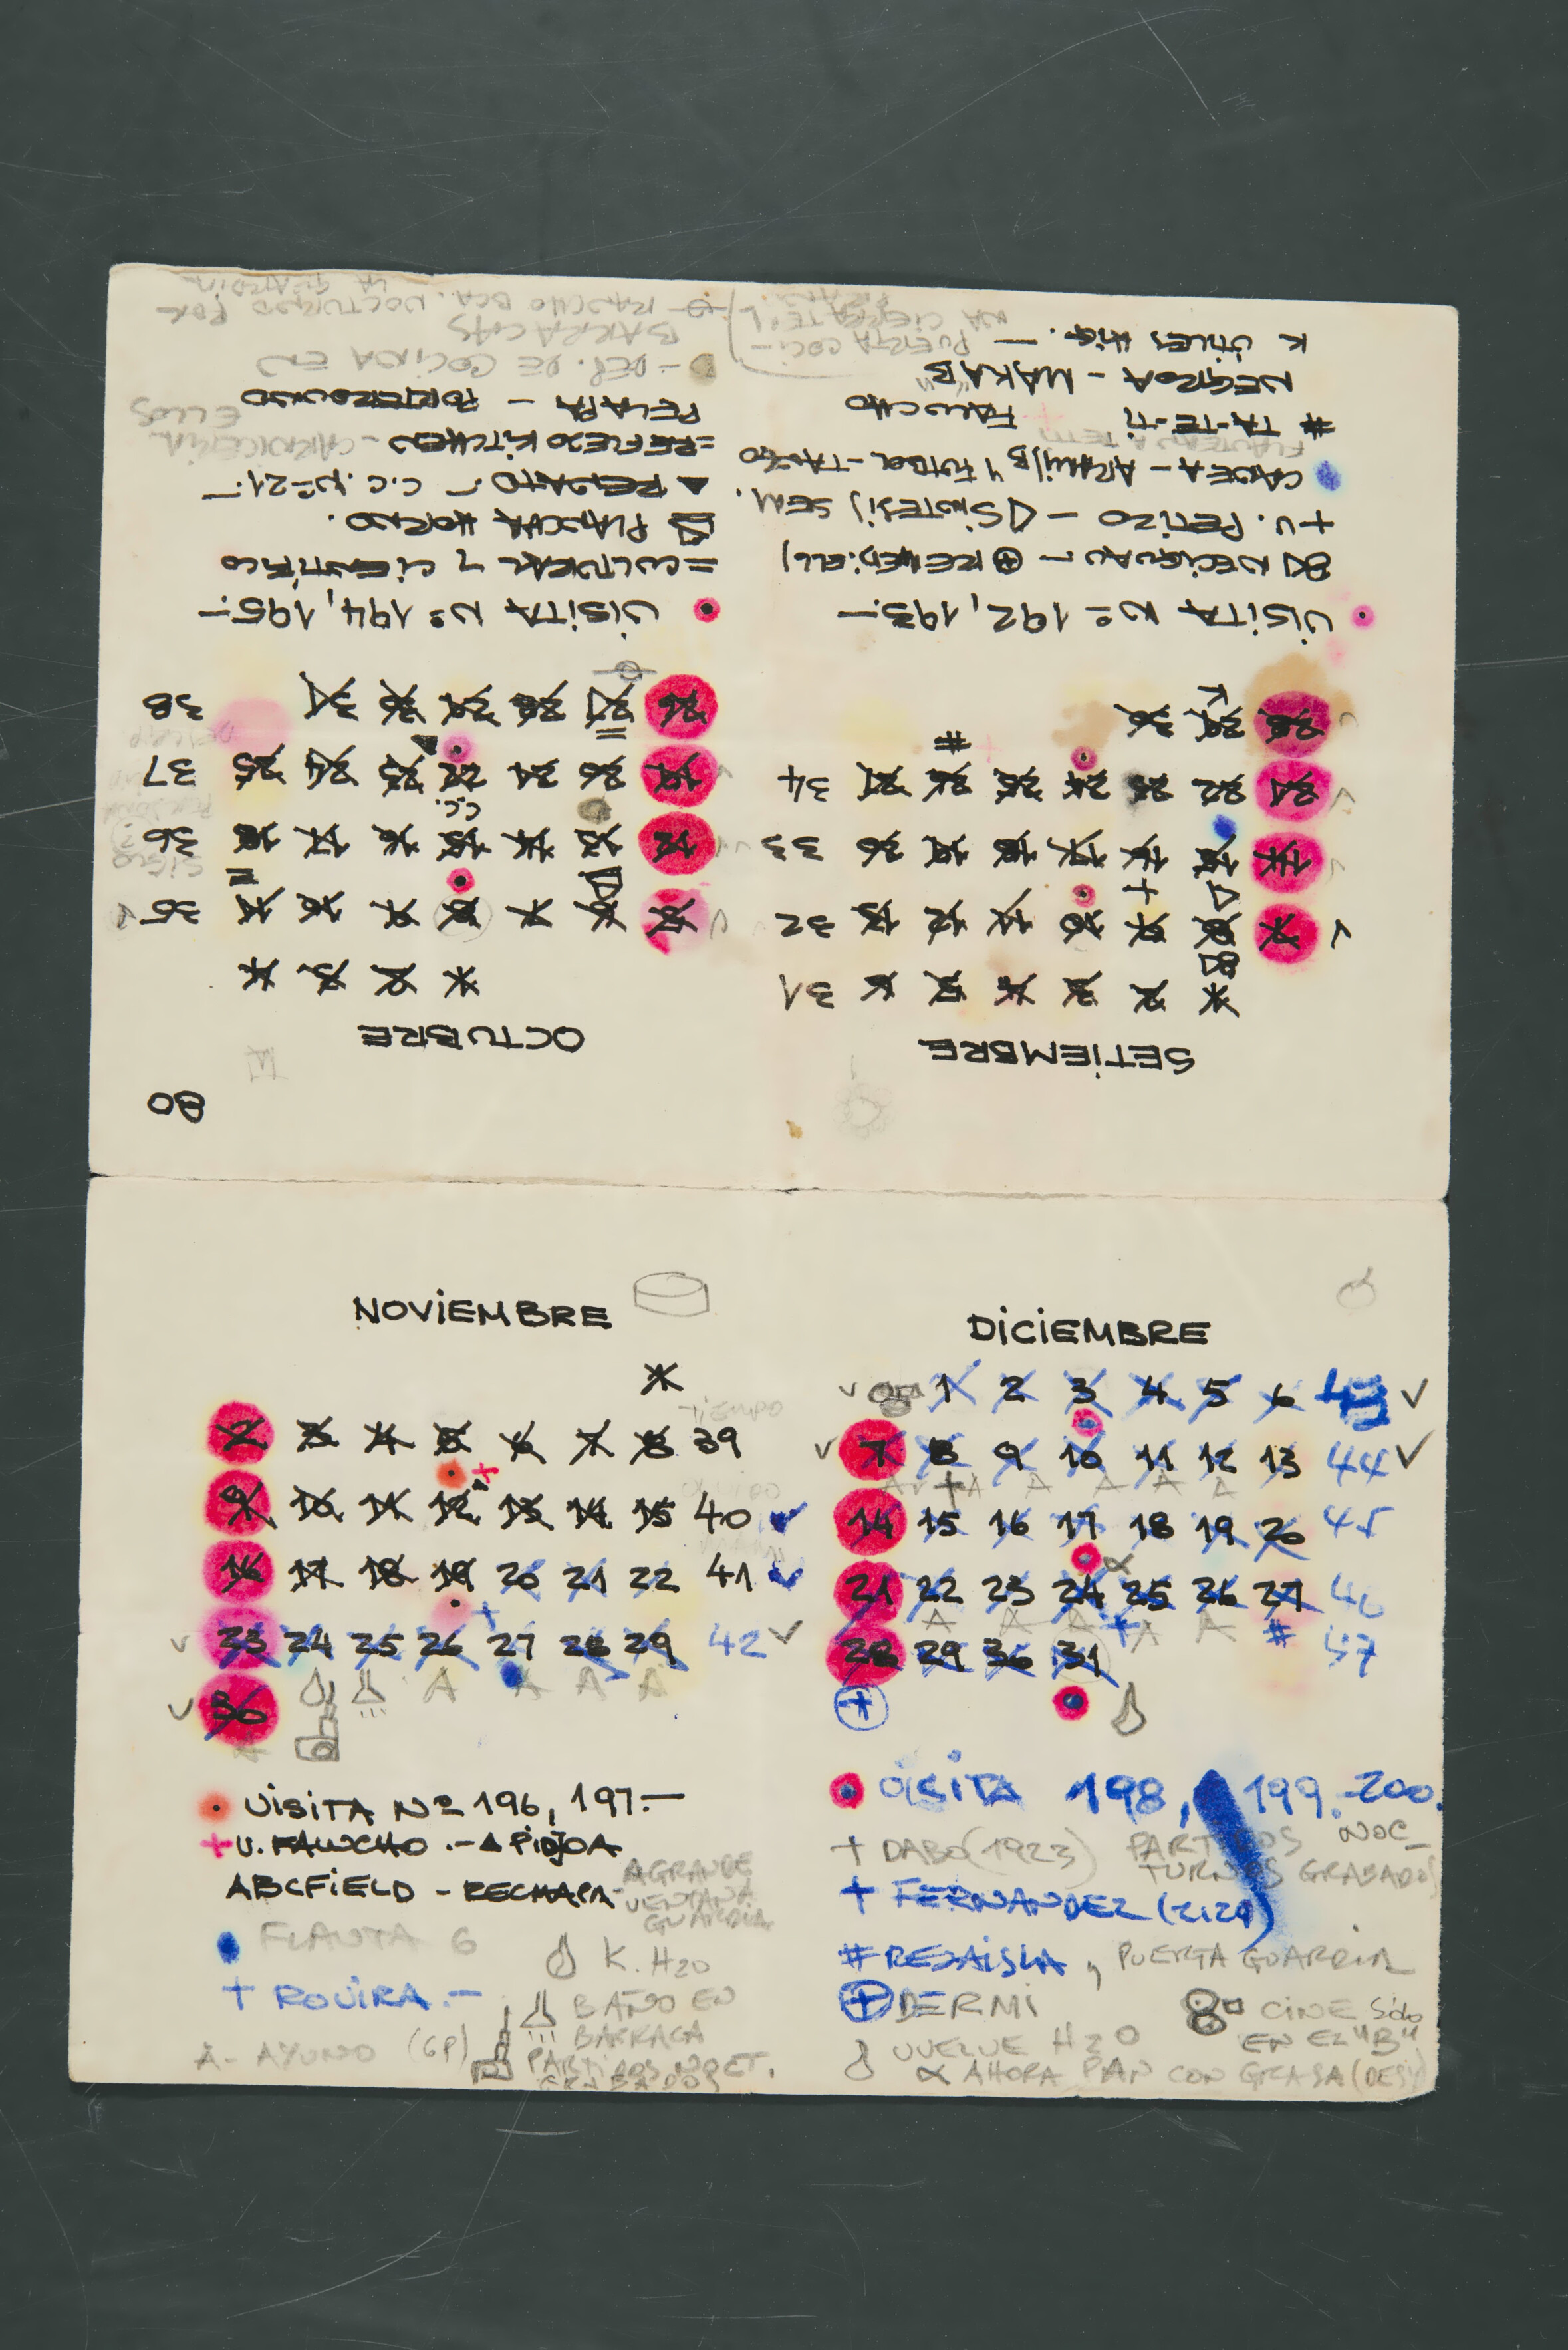 80
SETIEMBRE
1 2 3 4 5 6 31
7 8 9 10 11 12 13 32
14 15 16 17 18 19 20 33
21 22 23 24 25 26 27 34
28 29 30
VISITA Nº 192, 193.-
+ V. PETIZO -
# TA-TE-TI FALUCHO
NEGROA - MAKAB
K ÚTILES HIG. - PUERTA COCI-
OCTUBRE
1 2 3 4
5 6 7 8 9 10 11 35
12 13 14 15 16 17 18 36
C.C.
19 20 21 22 23 24 25 37
26 27 28 29 30 31 38
VISITA Nº 194, 195.-
= CULTURAL Y CIENTÍFICO
PLANCHA HORNO.
▲ REDATO - C.C. Nº 21.-
= REFLEJO KITCHEN - CARNICERIA
PELAPA - PORTEROUNO ELLOS
- DEP. DE COCINA EN
BARRACAS
- RANCHO BCA. NOCTURNO POR
LA GUARDIA
NOVIEMBRE
1
2 3 4 5 6 7 8 39
9 10 11 12 13 14 15 40
16 17 18 19 20 21 22 41
23 24 25 26 27 28 29 42
A A A A
30
VISITA Nº 196, 197.-
+ V. FALUCHO .- ▲ PIDJOA
ABCFIELD - RECHAPA- AGRANDE
VENTANA
GUARDIA
FLAUTA 6
K. H2O
+ ROVIRA.-
BAÑO EN
BARRACA
A- AYUNO (6P)
PARTIDOS NOCT.
GRABADOS
DICIEMBRE
1 2 3 4 5 6 43
7 8 9 10 11 12 13 44
14 15 16 17 18 19 20 45
21 22 23 24 25 26 27 46
28 29 30 31 # 47
VISITA 198, 199.-200.
+ DABO (1923) PARTIDOS NOC-
TURNOS GRABADOS
+ FERNANDEZ (2129)
# REJAISLA, PUERTA GUARDIA
DERMI
CINE SÓLO
EN EL "B"
VUELVE H2O
∝ AHORA PAN CON GRASA (DESY